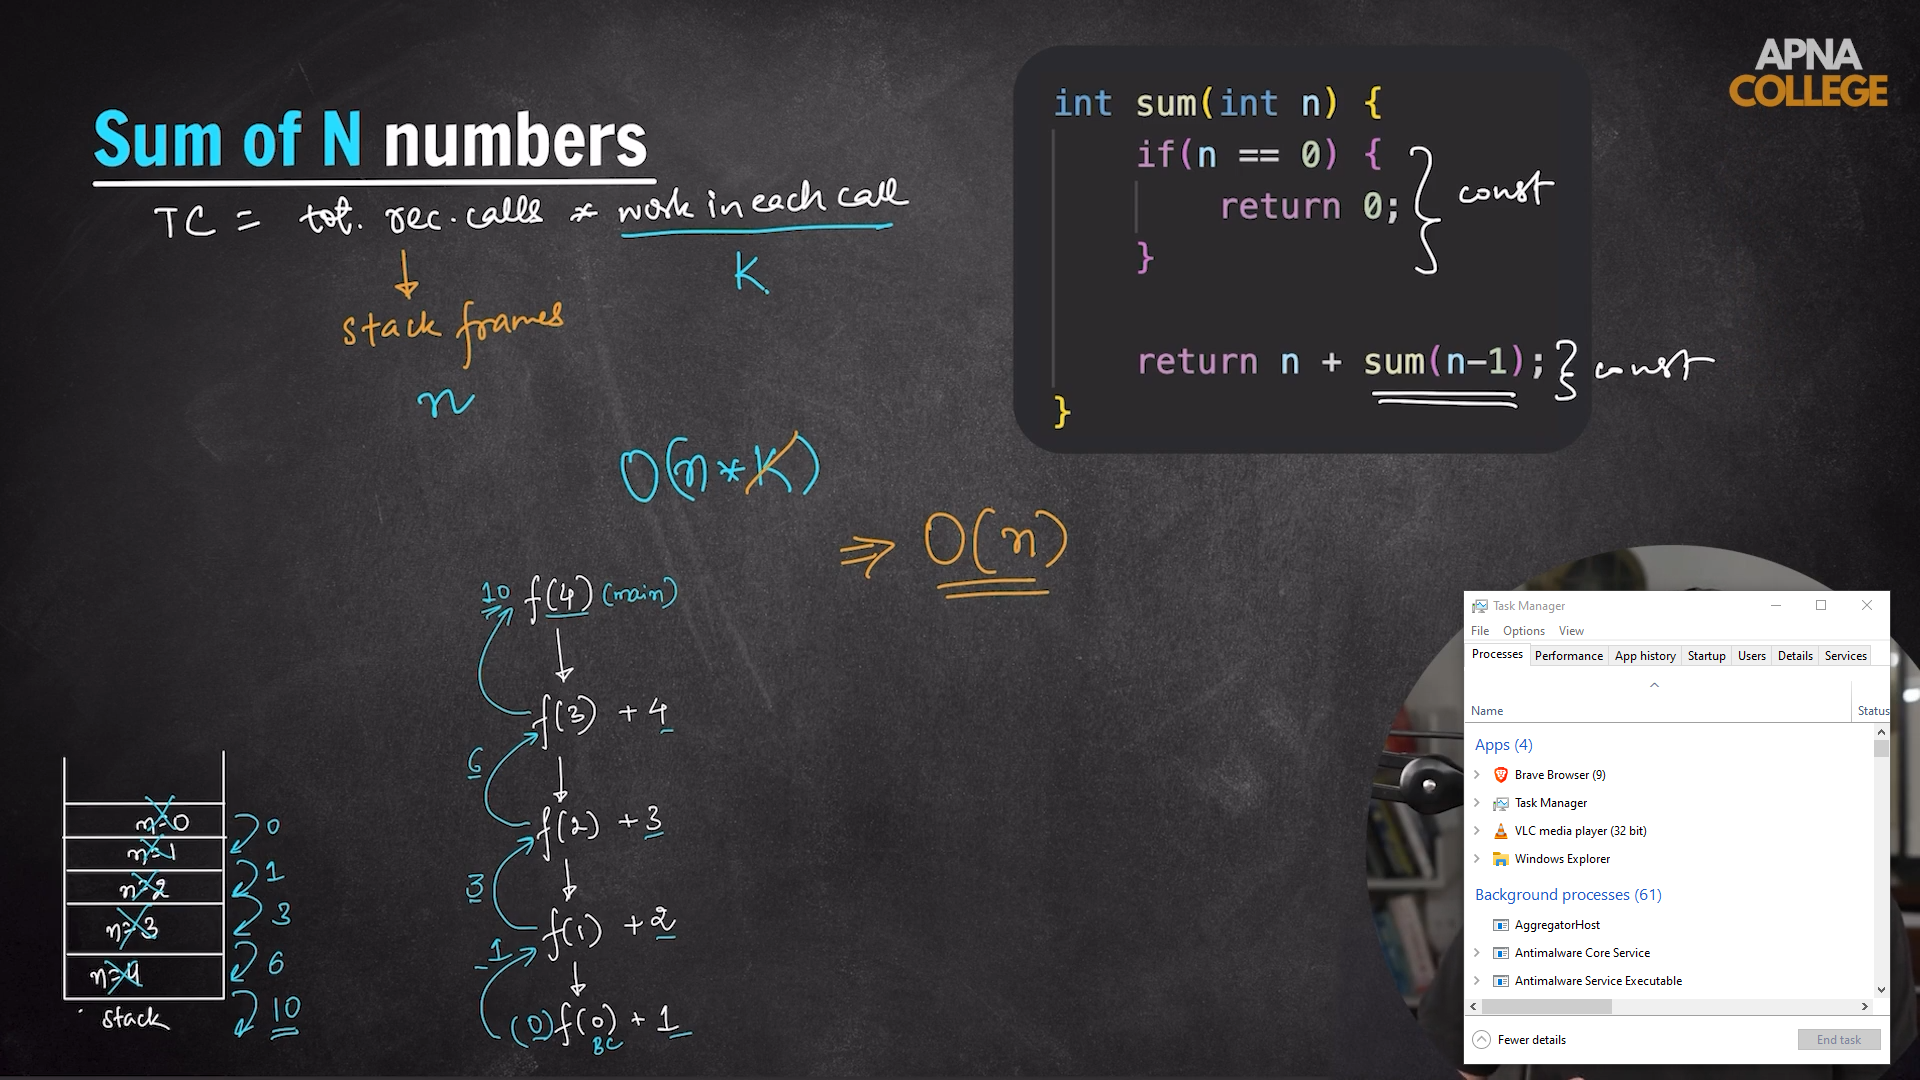 APNA
COLLEGE
Sum of N numbers
TC = tot. rec. calls * work in each call
K
stack frames
n
O(n*K)
⇒ O(n)
int sum(int n) {
if(n == 0) {
return 0;
}
const
return n + sum(n-1);
const
}
10 f(4) (main)
f(3) + 4
6
f(2) + 3
3
f(1) + 2
1
(0) f(0) + 1
BC
n=0
0
n=1
1
n=2
3
n=3
6
n=4
10
stack
Task Manager
File Options View
Processes Performance App history Startup Users Details Services
Name Status
Apps (4)
Brave Browser (9)
Task Manager
VLC media player (32 bit)
Windows Explorer
Background processes (61)
AggregatorHost
Antimalware Core Service
Antimalware Service Executable
Fewer details End task